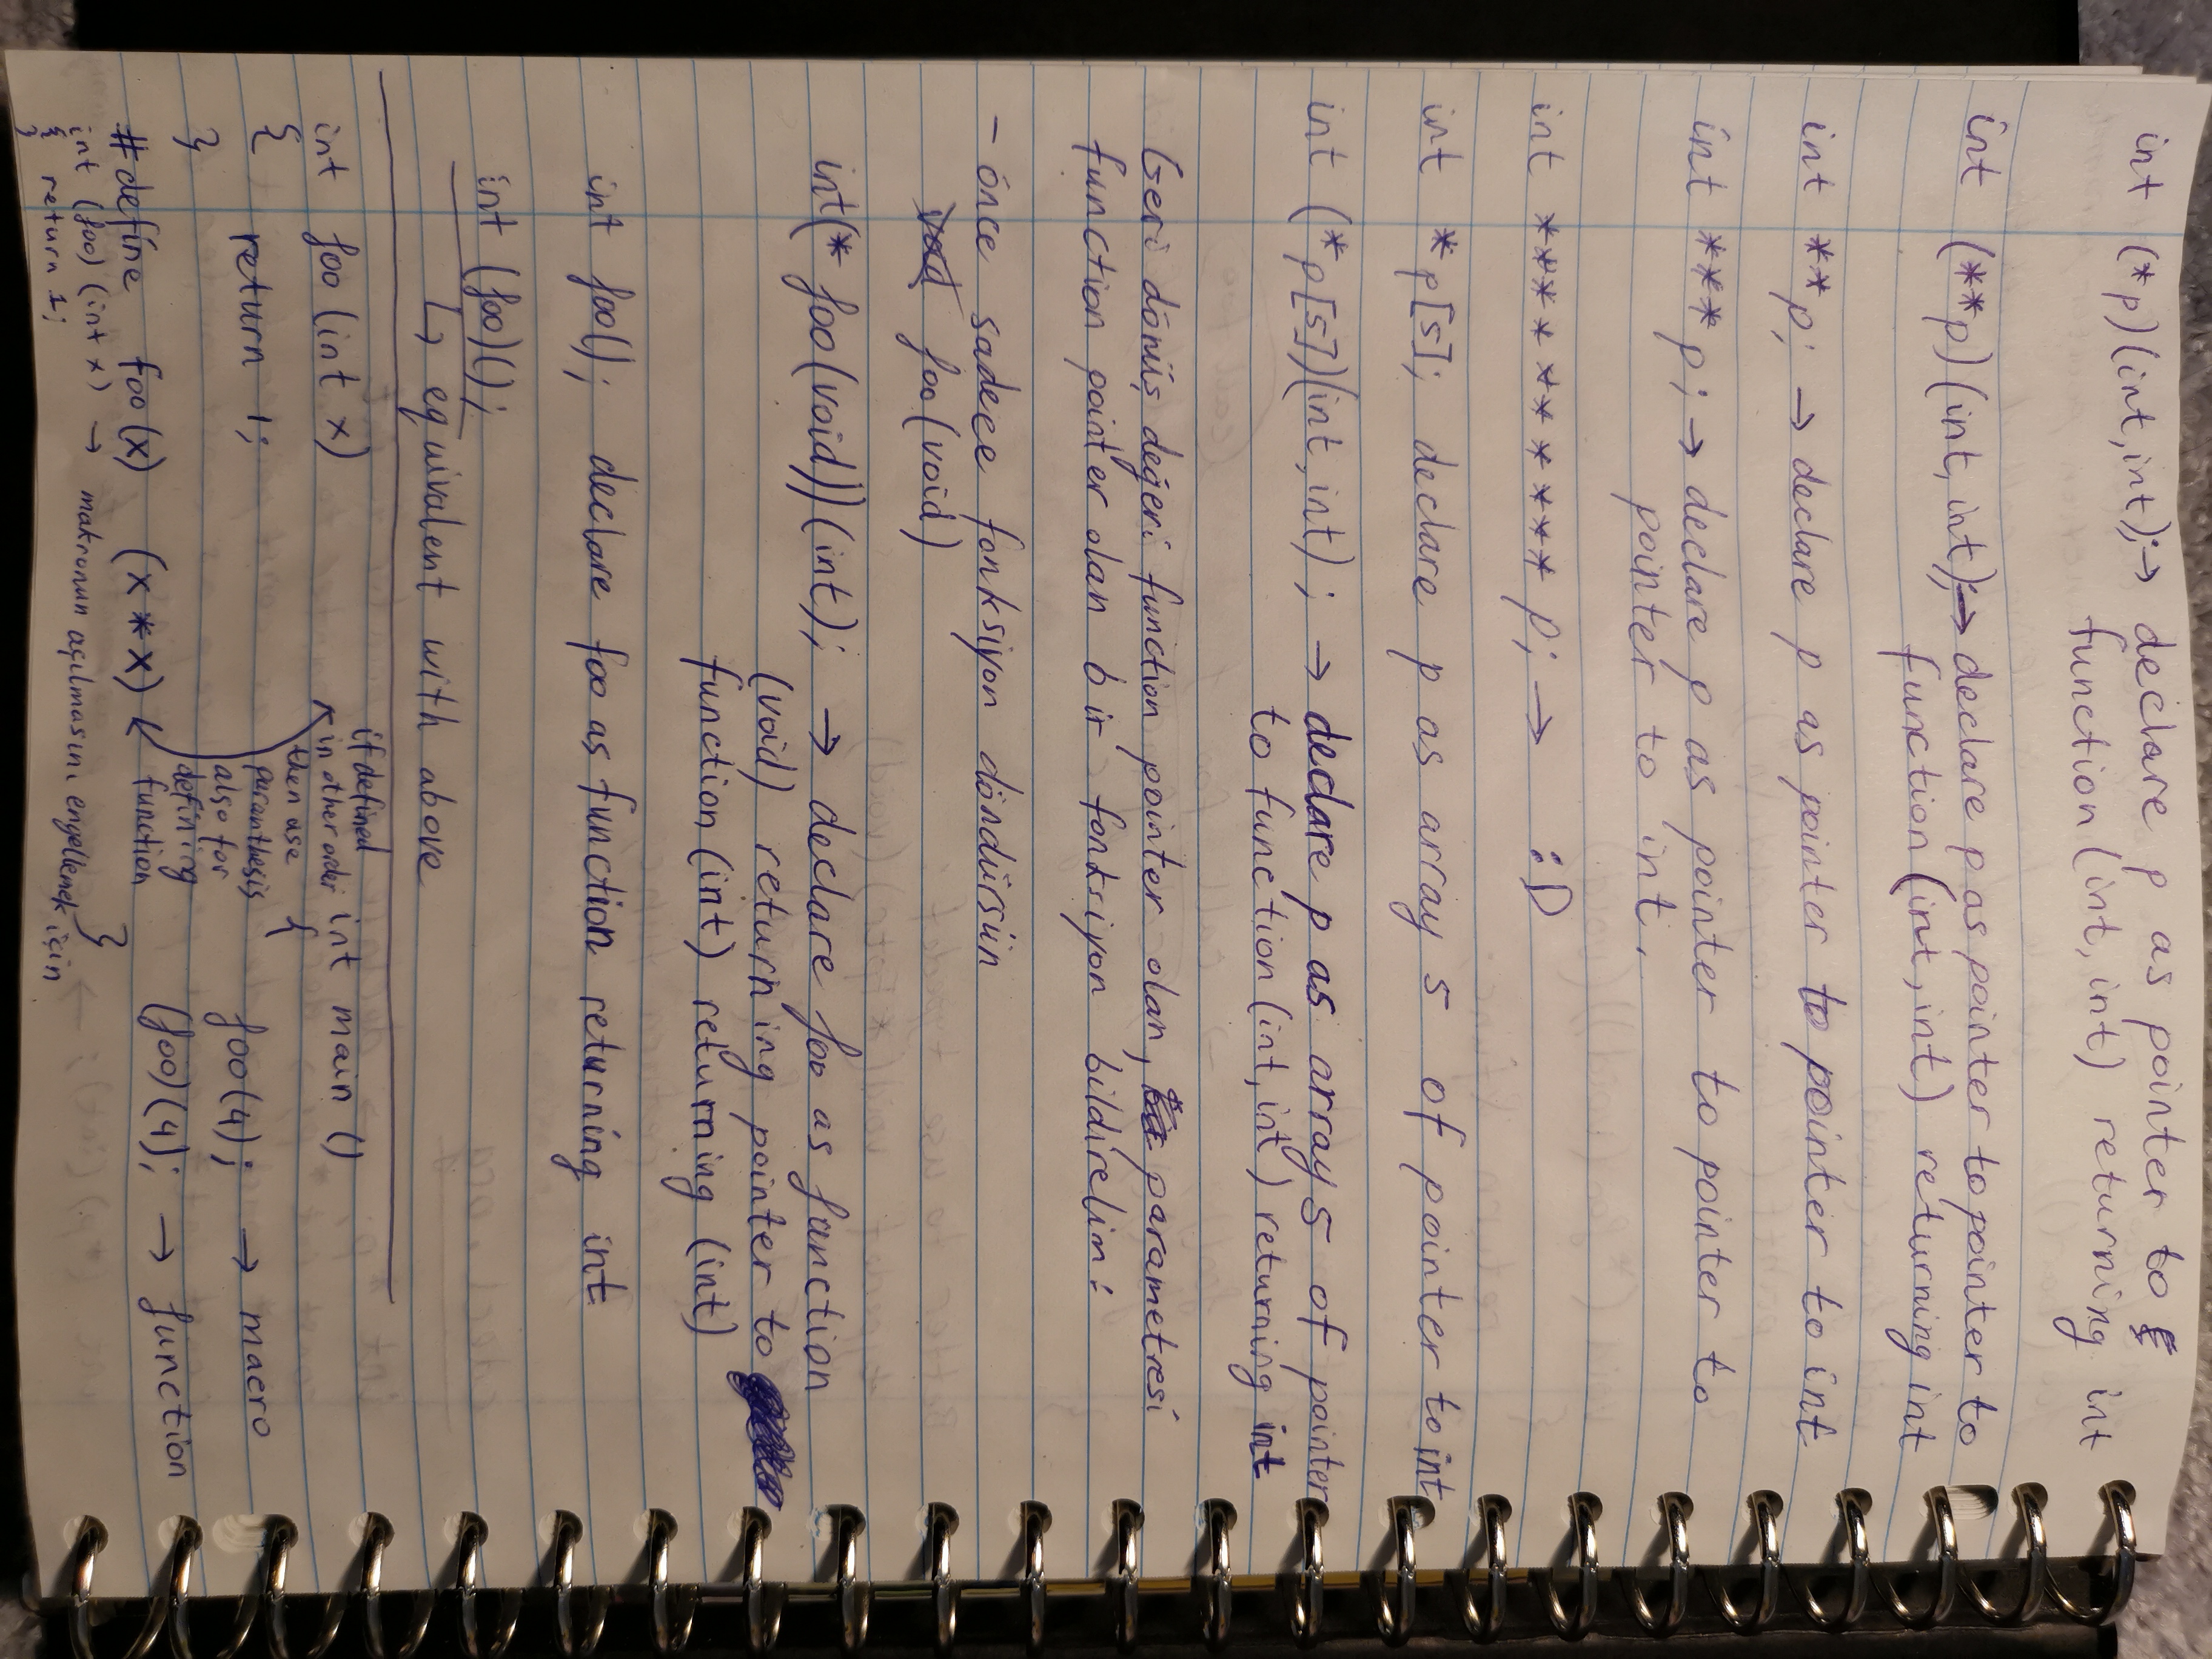 int (*p)(int,int); → declare p as pointer to
function (int, int) returning int
int (**p)(int, int); → declare p as pointer to pointer to
function (int, int) returning int
int **p; → declare p as pointer to pointer to int
int ***p; → declare p as pointer to pointer to
pointer to int.
int *********** p; → :D
int *p[5]; declare p as array 5 of pointer to int
int (*p[5])(int,int); → declare p as array 5 of pointer
to function (int, int) returning int
Geri dönüş değeri function pointer olan, parametresi
function pointer olan bir fonksiyon bildirelim:
- önce sadece fonksiyon döndürsün
void foo(void)
int(* foo(void))(int); → declare foo as function
(void) returning pointer to
function (int) returning (int)
int foo(); declare foo as function returning int
int (foo)();
↳ equivalent with above
int foo (int x)
{
return 1;
}
#define foo(x) (x*x)
if defined
in other order
then use
paranthesis
also for
defining
function
int main ()
{
foo(4); → macro
(foo)(4); → function
}
int (foo) (int x) → makronun açılmasını engellemek için
{ return 1;
}